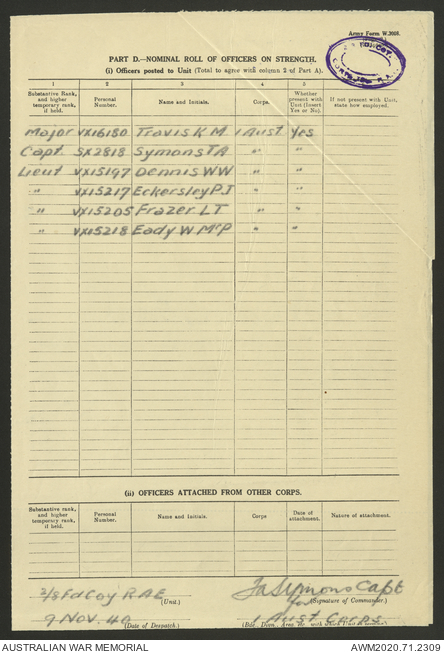 Army Form W.3008.
PART D.—NOMINAL ROLL OF OFFICERS ON STRENGTH.
(i) Officers posted to Unit (Total to agree with column 2 of Part A).
1 2 3 4 5
Substantive Rank, and higher temporary rank, if held. Personal Number. Name and Initials. Corps. Whether present with Unit (Insert Yes or No). If not present with Unit, state how employed.
Major VX16180 Travis K M 1 Aust Yes
Capt. SX2818 Symons TA " "
Lieut VX15197 Dennis WW " "
" VX15217 Eckersley PJ " "
" VX15205 Frazer LT " "
" VX15218 Eady W McP " "
(ii) OFFICERS ATTACHED FROM OTHER CORPS.
Substantive rank, and higher temporary rank, if held. Personal Number. Name and Initials. Corps Date of attachment. Nature of attachment.
2/8 Fd Coy RAE (Unit.) TA Symons Capt
for (Signature of Commander.)
9 Nov. 40 (Date of Despatch.) 1 Aust Corps
AUSTRALIAN WAR MEMORIAL AWM2020.71.2309